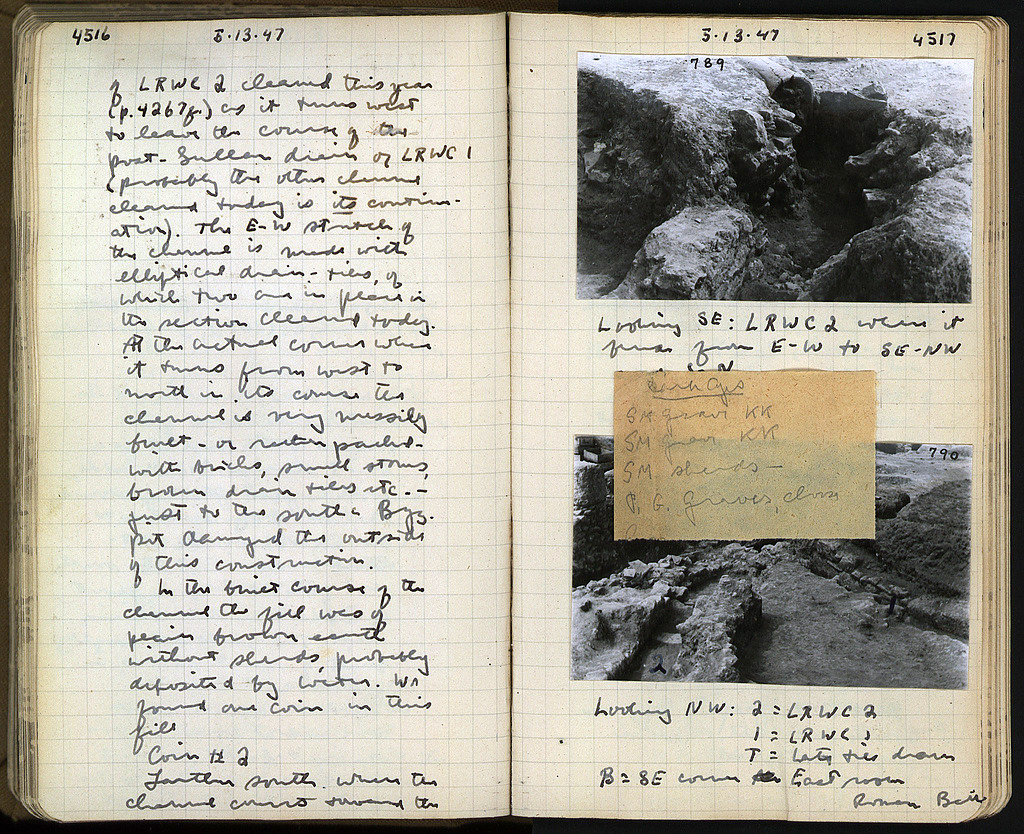 4516
5.13.47
of LRWC 2 cleared this year
(p. 4267f.) as it turns west
to leave the course of the
post-Sullan drain of LRWC 1
(probably the other channel
cleared today is its continu-
ation). The E-W stretch of
the channel is made with
elliptical drain-tiles, of
which two are in place in
the section cleared today.
At the actual corner where
it turns from west to
north in its course the
channel is very messily
built - or rather packed -
with bricks, small stones,
broken drain tiles etc. -
just to the south a Byz.
pit damaged the outside
of this construction.
In the brief course of the
channel the fill was of
brown earth
without sherds, probably
deposited by water. We
found one coin in this
fill
Coin # 2
Farther south where the
channel comes toward the
5.13.47
4517
789
Looking SE: LRWC 2 where it
turns from E-W to SE-NW
SM KK
SM KK
SM sherds -
P.G. Graves,
790
1
2
Looking NW: 2 = LRWC 2
1 = LRWC 1
T = Late tile drain
B = SE corner East room
Roman Bath